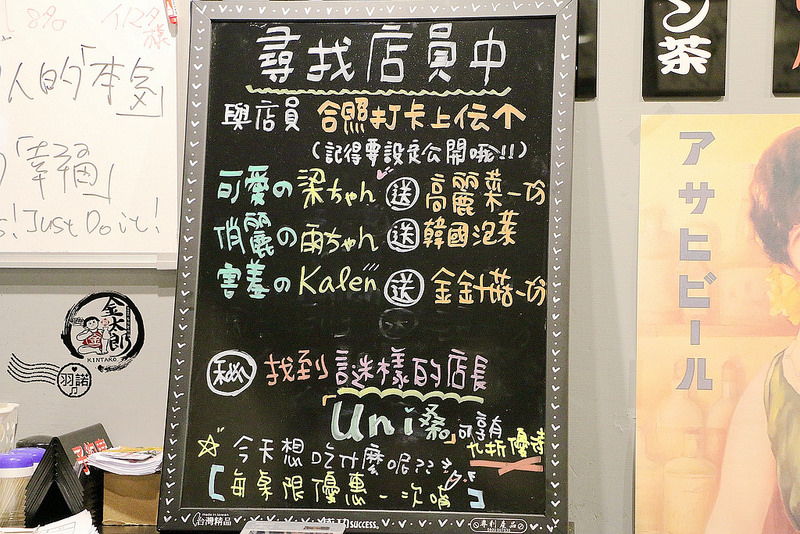 8%
人的「本気」
「幸福」
Just Do it!
尋找店員中
與店員 合照打卡上伝↑
(記得要設定公開哦!!)
可愛の梁ちゃん 送 高麗菜一份
俏麗の雨ちゃん 送 韓國泡菜
害羞のKalen 送 金針菇一份
秘 找到謎樣的店長
「Uni桑」可享有
九折優待
☆今天想吃什麼呢??
【每桌限優惠一次唷】
made in taiwan
台灣精品
SUCCESS.
專利產品
金太郎
KINTARO
羽諾
ン茶
アサヒビール